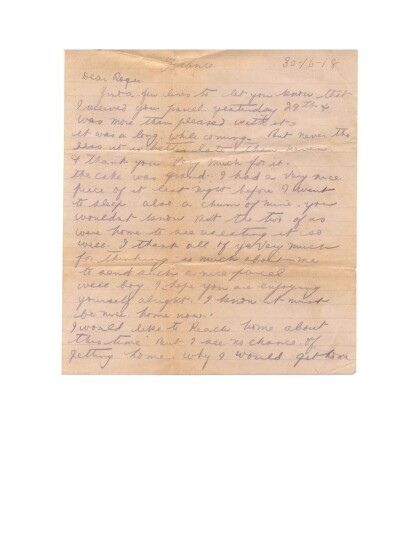 France 30-6-18
Dear Roger
Just a few lines to let you know that
I received your parcel yesterday 29th &
was more than pleased with it.
it was a long while coming. But never the
less it is better late than never
& thank you very much for it.
the cake was grand. I had a very nice
piece of it last night before I went
to sleep also a chum of mine. you
wouldent know But the two of us
were home to see us eating it so
well. I thank all of ye very much
for thinking so much about me
to send such a nice parcel
well boy I hope you are enjoying
yourself alright. I know it must
be nice home now.
I would like to Reach home about
this time But I see no chance of
getting home. why I would get home